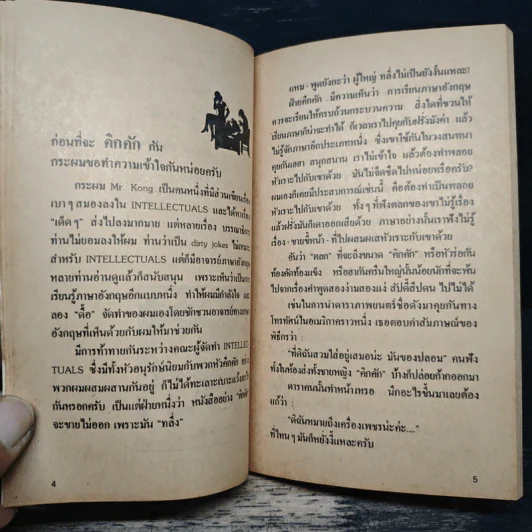 ก่อนที่จะ คิกคัก กัน
กระผมขอทำความเข้าใจกันหน่อยครับ
กระผม Mr. Kong เป็นคนหนึ่งที่มีส่วนเขียนเรื่อง
เบาๆ สมองลงใน INTELLECTUALS และได้หาเรื่อง
"เด็ดๆ" ส่งไปลงมากมาย แต่หลายเรื่อง บรรณาธิการ
ท่านไม่ยอมลงให้ผม ท่านว่าเป็น dirty jokes ไม่เหมาะ
สำหรับ INTELLECTUALS แต่ก็มีอาจารย์ภาษาอังกฤษ
หลายท่านอ่านดูแล้วก็สนับสนุน เพราะเห็นว่าเป็นการ
เรียนรู้ภาษาอังกฤษอีกแบบหนึ่ง ทำให้ผมมีกำลังใจ และ
ลอง "ดื้อ" จัดทำของผมเองโดยชักชวนอาจารย์ทางภาษา
อังกฤษที่เห็นด้วยกับผมให้มาช่วยกัน
มีการท้าทายกันระหว่างคณะผู้จัดทำ INTELLEC-
TUALS ซึ่งมีทั้งหัวอนุรักษ์นิยมกับพวกหัวคิกคัก
พวกผมผสมผสานกันอยู่ ก็ไม่ได้ทะเลาะเบาะแว้งอะไร
กันหรอกครับ เป็นแต่ฝ่ายหนึ่งว่า หนังสืออย่าง "คิกคัก"
จะขายไม่ออก เพราะมัน "ทลึ่ง"
4
แหม-พูดยังกะว่า ผู้ใหญ่ ทลึ่งไม่เป็นยังงั้นแหละ!
ฝ่ายคิกคัก มีความเห็นว่า การเรียนภาษาอังกฤษ
ควรจะเรียนให้ครบถ้วนกระบวนความ สิ่งใดที่ชวนให้
เรียนภาษาก็น่าจะทำได้ ก็เวลาเราไปคุยกับฝรั่งมังค่า แล้ว
ไม่รู้จักภาษาอังกฤษประเภทหนึ่ง ซึ่งเขาใช้กันในวงสนทนา
คุยกันเฮฮา สนุกสนาน เราไม่เข้าใจ แล้วต้องทำพลอย
หัวเราะไปกับเขาด้วย มันไม่จืดชืดไปหน่อยหรือครับ?
ผมเองก็เคยมีประสบการณ์เช่นนี้ คือต้องทำเป็นพลอย
หัวเราะไปกับเขาด้วย ทั้งๆ ที่ฟังตลกของเขาไม่รู้เรื่อง
แล้วฝรั่งมันก็เดาออกเสียด้วย ภาษาอย่างนั้นเราฟังไม่รู้
เรื่อง-ขายขี้หน้า-ที่ไปผสมผเสหัวเราะกับเขาด้วย
อันว่า "ตลก" ที่จะถึงขนาด "คิกคัก" หรือหัวร่อกัน
ท้องคัดท้องแข็ง หรือฮากันครืนใหญ่นั้นน้อยนักที่จะพ้น
ไปจากเรื่องคำพูดสองง่ามสองแง่ สัปดี้สีปดน ไปไม่ได้
เช่นในการนำดาราภาพยนตร์ชื่อดังมาคุยกันทาง
โทรทัศน์ในอเมริกาคราวหนึ่ง เธอตอบคำสัมภาษณ์ของ
พิธีกรว่า :
"ที่ดิฉันสวมใส่อยู่เสมอน่ะ มันของปลอม" คนฟัง
ทั้งในห้องส่งทั้งชายหญิง "คิกคัก" บ้างก็ปล่อยก๊ากออกมา
ดาราคนนั้นทำหน้าเหรอ นึกอะไรขึ้นมาเลยต้อง
แก้ว่า :
"ดิฉันหมายถึงเครื่องเพชรน่ะค่ะ...."
ที่ไหนๆ มันก็หยั่งงี้แหละครับ
5